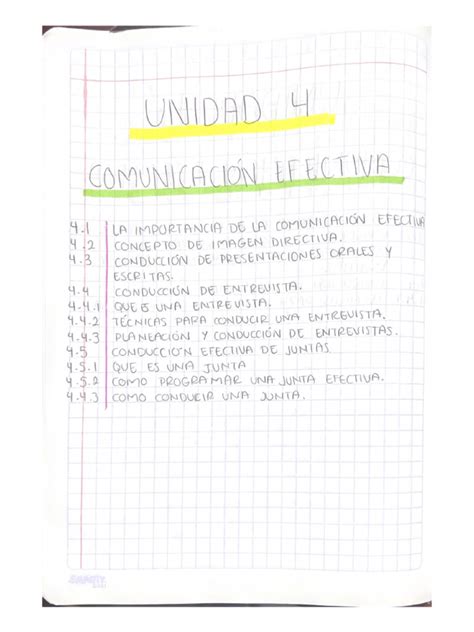 UNIDAD 4
COMUNICACIÓN EFECTIVA
4.1 LA IMPORTANCIA DE LA COMUNICACIÓN EFECTIVA
4.2 CONCEPTO DE IMAGEN DIRECTIVA.
4.3 CONDUCCIÓN DE PRESENTACIONES ORALES Y
ESCRITAS.
4.4 CONDUCCIÓN DE ENTREVISTA.
4.4.1 QUE ES UNA ENTREVISTA.
4.4.2 TÉCNICAS PARA CONDUCIR UNA ENTREVISTA.
4.4.3 PLANEACIÓN Y CONDUCCIÓN DE ENTREVISTAS.
4.5 CONDUCCIÓN EFECTIVA DE JUNTAS
4.5.1 QUE ES UNA JUNTA
4.5.2 COMO PROGRAMAR UNA JUNTA EFECTIVA.
4.4.3 COMO CONDUCIR UNA JUNTA.